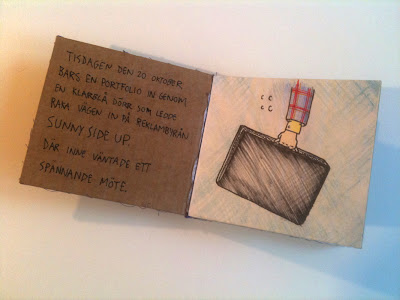 TISDAGEN DEN 20 OKTOBER
BARS EN PORTFOLIO IN GENOM
EN KLARBLÅ DÖRR SOM LEDDE
RAKA VÄGEN IN PÅ REKLAMBYRÅN
SUNNY SIDE UP.
DÄR INNE VÄNTADE ETT
SPÄNNANDE MÖTE.